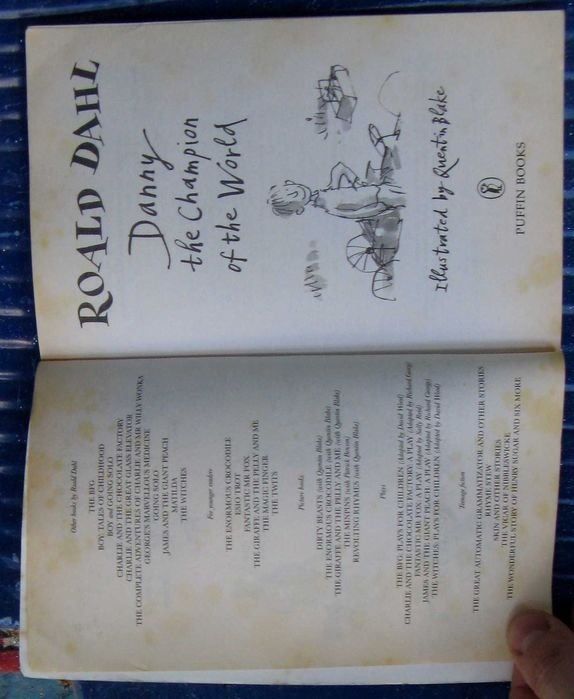 Other books by Roald Dahl
THE BFG
BOY: TALES OF CHILDHOOD
BOY and GOING SOLO
CHARLIE AND THE CHOCOLATE FACTORY
CHARLIE AND THE GREAT GLASS ELEVATOR
THE COMPLETE ADVENTURES OF CHARLIE AND MR WILLY WONKA
GEORGE'S MARVELLOUS MEDICINE
GOING SOLO
JAMES AND THE GIANT PEACH
MATILDA
THE WITCHES
For younger readers
THE ENORMOUS CROCODILE
ESIO TROT
FANTASTIC MR FOX
THE GIRAFFE AND THE PELLY AND ME
THE MAGIC FINGER
THE TWITS
Picture books
DIRTY BEASTS (with Quentin Blake)
THE ENORMOUS CROCODILE (with Quentin Blake)
THE GIRAFFE AND THE PELLY AND ME (with Quentin Blake)
THE MINPINS (with Patrick Benson)
REVOLTING RHYMES (with Quentin Blake)
Plays
THE BFG: PLAYS FOR CHILDREN (Adapted by David Wood)
CHARLIE AND THE CHOCOLATE FACTORY: A PLAY (Adapted by Richard George)
FANTASTIC MR FOX: A PLAY (Adapted by Sally Reid)
JAMES AND THE GIANT PEACH: A PLAY (Adapted by Richard George)
THE WITCHES: PLAYS FOR CHILDREN (Adapted by David Wood)
Teenage fiction
THE GREAT AUTOMATIC GRAMMATIZATOR AND OTHER STORIES
RHYME STEW
SKIN AND OTHER STORIES
THE VICAR OF NIBBLESWICKE
THE WONDERFUL STORY OF HENRY SUGAR AND SIX MORE
ROALD DAHL
Danny
the Champion
of the World
Illustrated by Quentin Blake
PUFFIN BOOKS